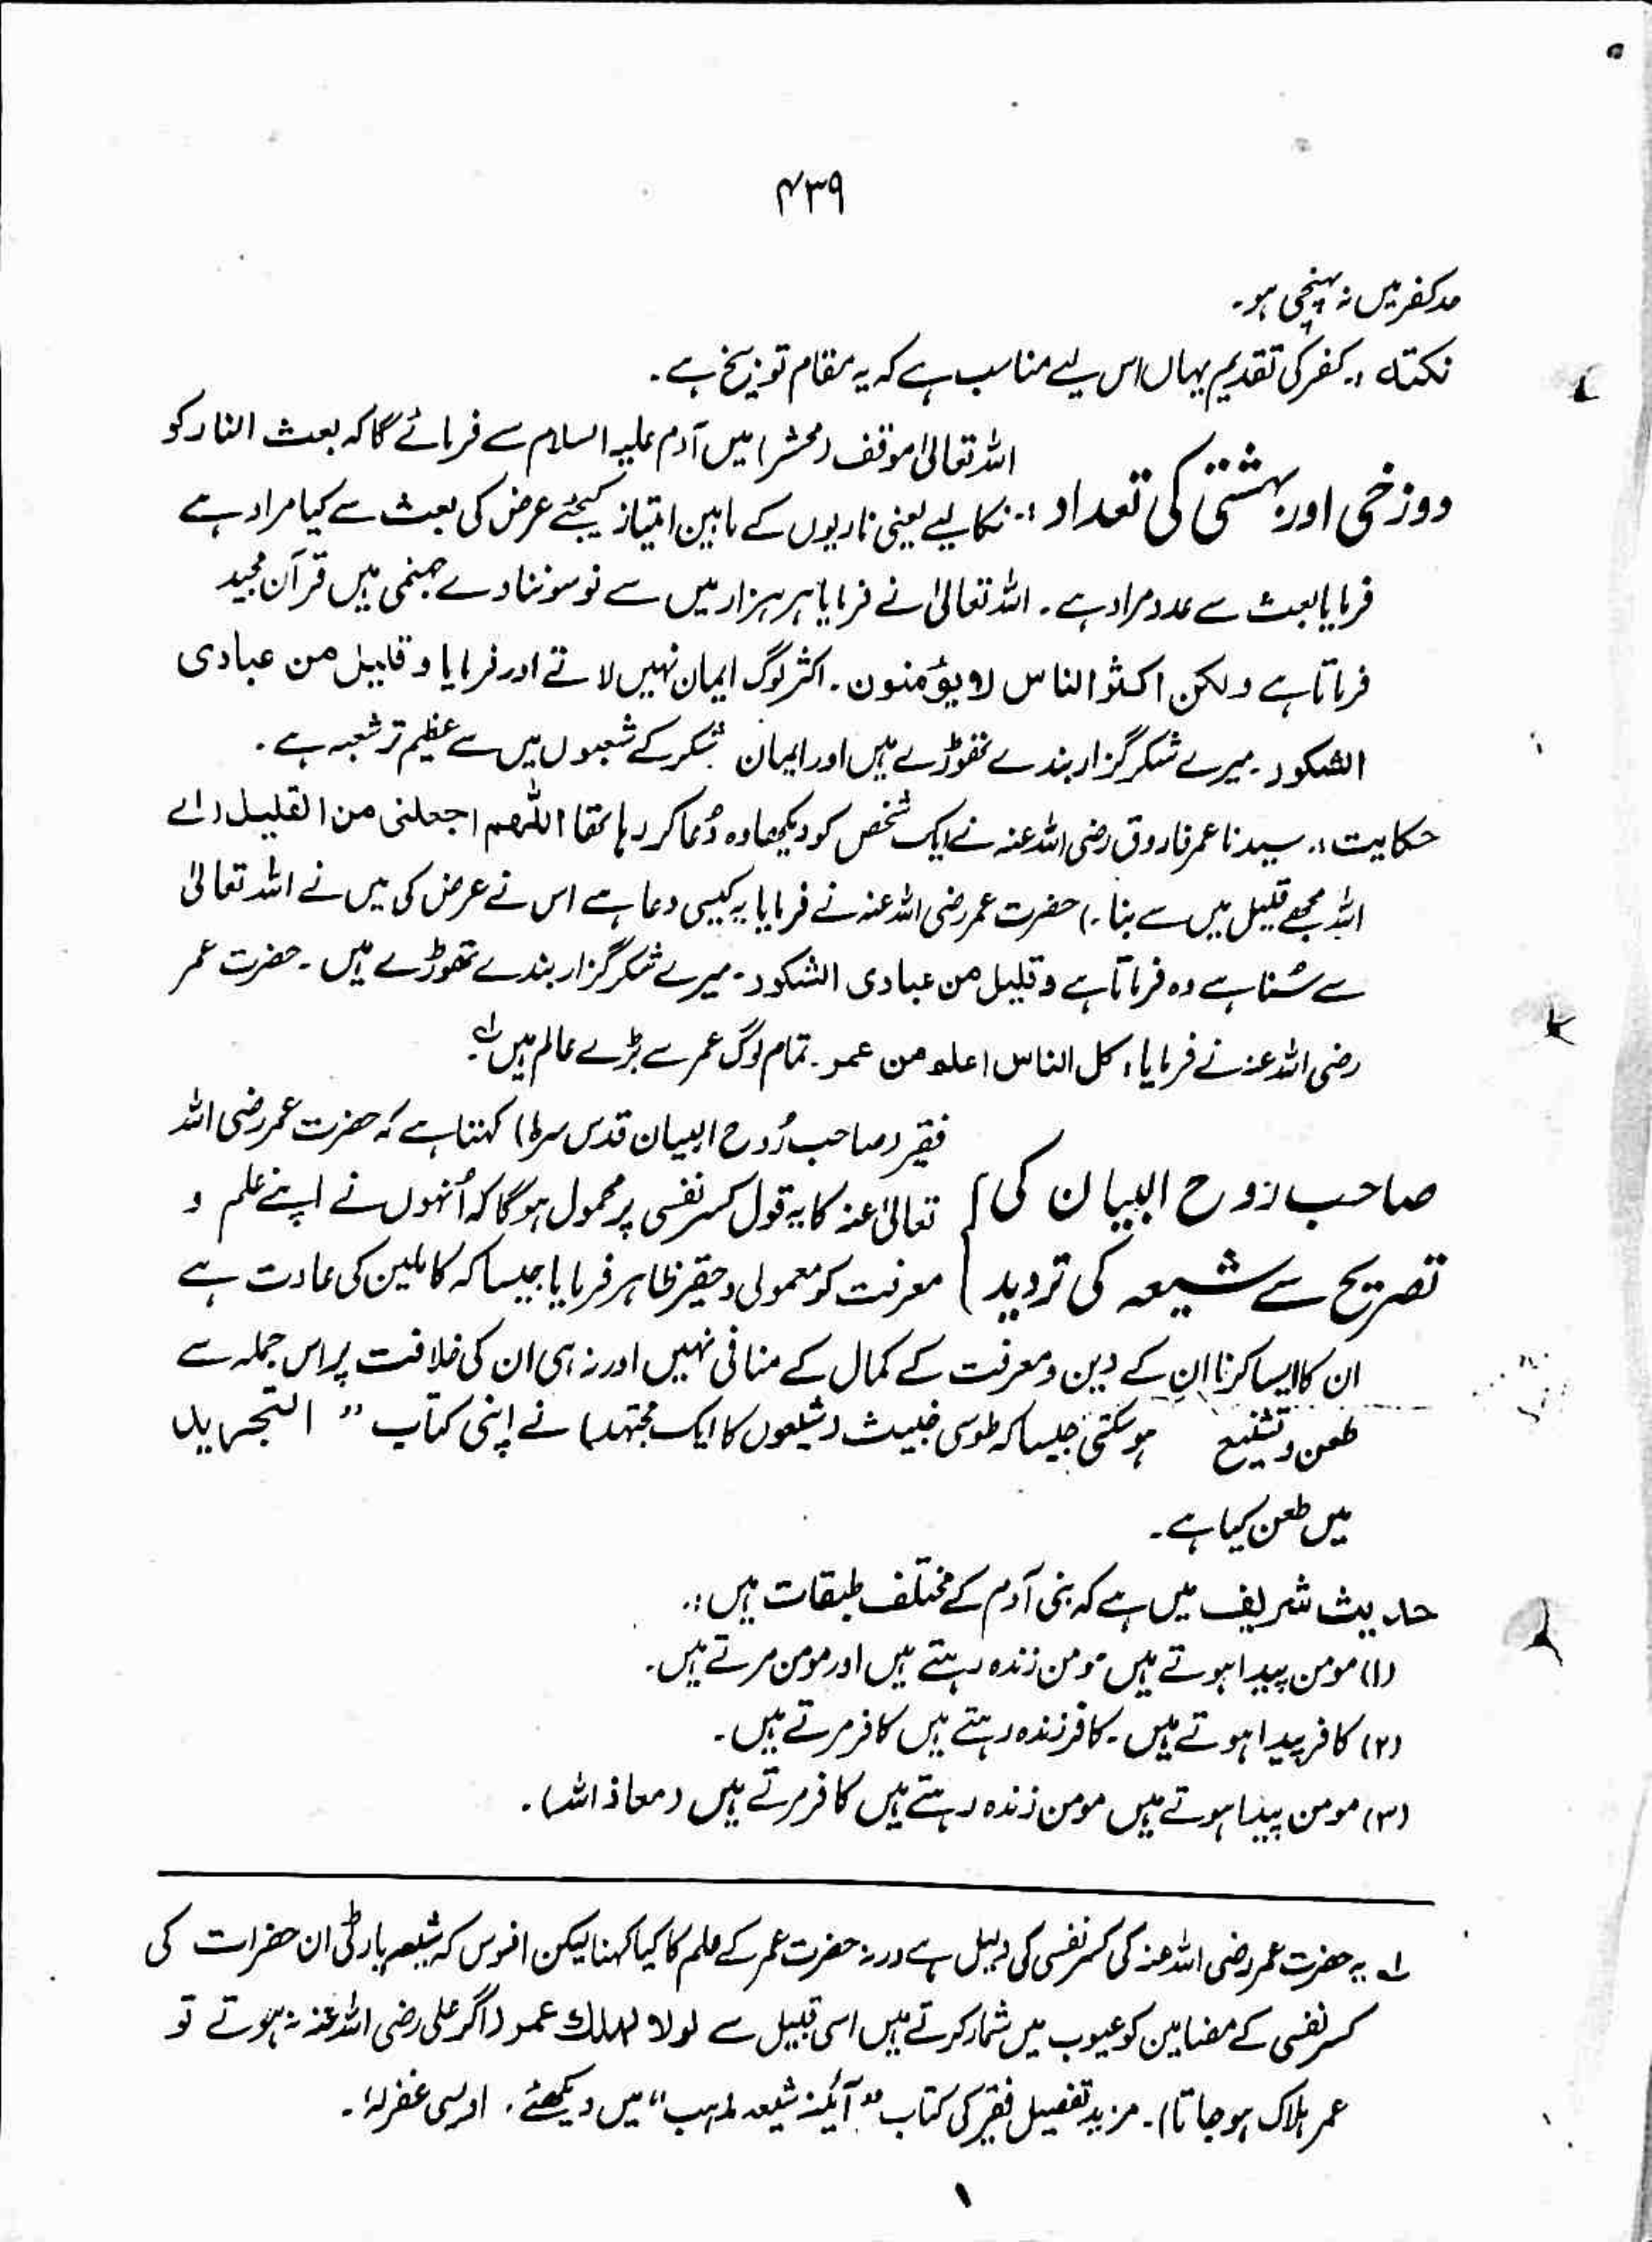 ۴۳۹
حد کفر میں نہ پہنچی ہو۔
نکتہ :۔ کفر کی تقدیم یہاں اس لیے مناسب ہے کہ یہ مقام توبیخ ہے۔
دوزخی اور بہشتی کی تعداد :۔
اللہ تعالیٰ موقف (محشر) میں آدم علیہ السلام سے فرمائے گا کہ بعث النار کو
نکالیے یعنی ناریوں کے مابین امتیاز کیجئے عرض کی بعث سے کیا مراد ہے
فرمایا بعث سے عدد مراد ہے۔ اللہ تعالیٰ نے فرمایا ہر ہزار میں سے نو سو ننانوے جہنمی ہیں قرآن مجید
فرماتا ہے ولکن اکثر الناس لا یؤمنون۔ اکثر لوگ ایمان نہیں لاتے اور فرمایا وقلیل من عبادی
الشکور۔ میرے شکر گزار بندے تھوڑے ہیں اور ایمان شکر کے شعبوں میں سے عظیم تر شعبہ ہے۔
حکایت :۔ سیدنا عمر فاروق رضی اللہ عنہ نے ایک شخص کو دیکھا وہ دُعا کر رہا تھا اللھم اجعلنی من القلیل (اے
اللہ مجھے قلیل میں سے بنا۔) حضرت عمر رضی اللہ عنہ نے فرمایا یہ کیسی دعا ہے اس نے عرض کی میں نے اللہ تعالیٰ
سے سُنا ہے وہ فرماتا ہے وقلیل من عبادی الشکور۔ میرے شکر گزار بندے تھوڑے ہیں۔ حضرت عمر
رضی اللہ عنہ نے فرمایا، کل الناس اعلم من عمر۔ تمام لوگ عمر سے بڑے عالم ہیں لہ۔
صاحب روح البیان کی
تصریح سے شیعہ کی تردید
فقیر (صاحب رُوح البیان قدس سرہٗ) کہتا ہے کہ حضرت عمر رضی اللہ
تعالیٰ عنہ کا یہ قول کسر نفسی پر محمول ہوگا کہ اُنہوں نے اپنے علم و
معرفت کو معمولی و حقیر ظاہر فرمایا جیسا کہ کاملین کی عادت ہے
ان کا ایسا کرنا ان کے دین و معرفت کے کمال کے منافی نہیں اور نہ ہی ان کی خلافت پر اس جملہ سے
طعن و تشنیع ہوسکتی جیسا کہ طوسی خبیث (شیعوں کا ایک مجتہد) نے اپنی کتاب " التجرید
میں طعن کیا ہے۔
حدیث شریف میں ہے کہ بنی آدم کے مختلف طبقات ہیں :۔
(۱) مومن پیدا ہوتے ہیں مومن زندہ رہتے ہیں اور مومن مرتے ہیں۔
(۲) کافر پیدا ہوتے ہیں۔ کافر زندہ رہتے ہیں کافر مرتے ہیں۔
(۳) مومن پیدا ہوتے ہیں مومن زندہ رہتے ہیں کافر مرتے ہیں (معاذ اللہ)۔
لہ۔ یہ حضرت عمر رضی اللہ عنہ کی کسر نفسی کی دلیل ہے ورنہ حضرت عمر کے علم کا کیا کہنا لیکن افسوس کہ شیعہ پارٹی ان حضرات کی
کسر نفسی کے مضامین کو عیوب میں شمار کرتے ہیں اسی قبیل سے لولا لھلك عمر (اگر علی رضی اللہ عنہ نہ ہوتے تو
عمر ہلاک ہو جاتا)۔ مزید تفصیل فقیر کی کتاب "آئینہ شیعہ مذہب" میں دیکھئے۔ اویسی غفرلہٗ۔